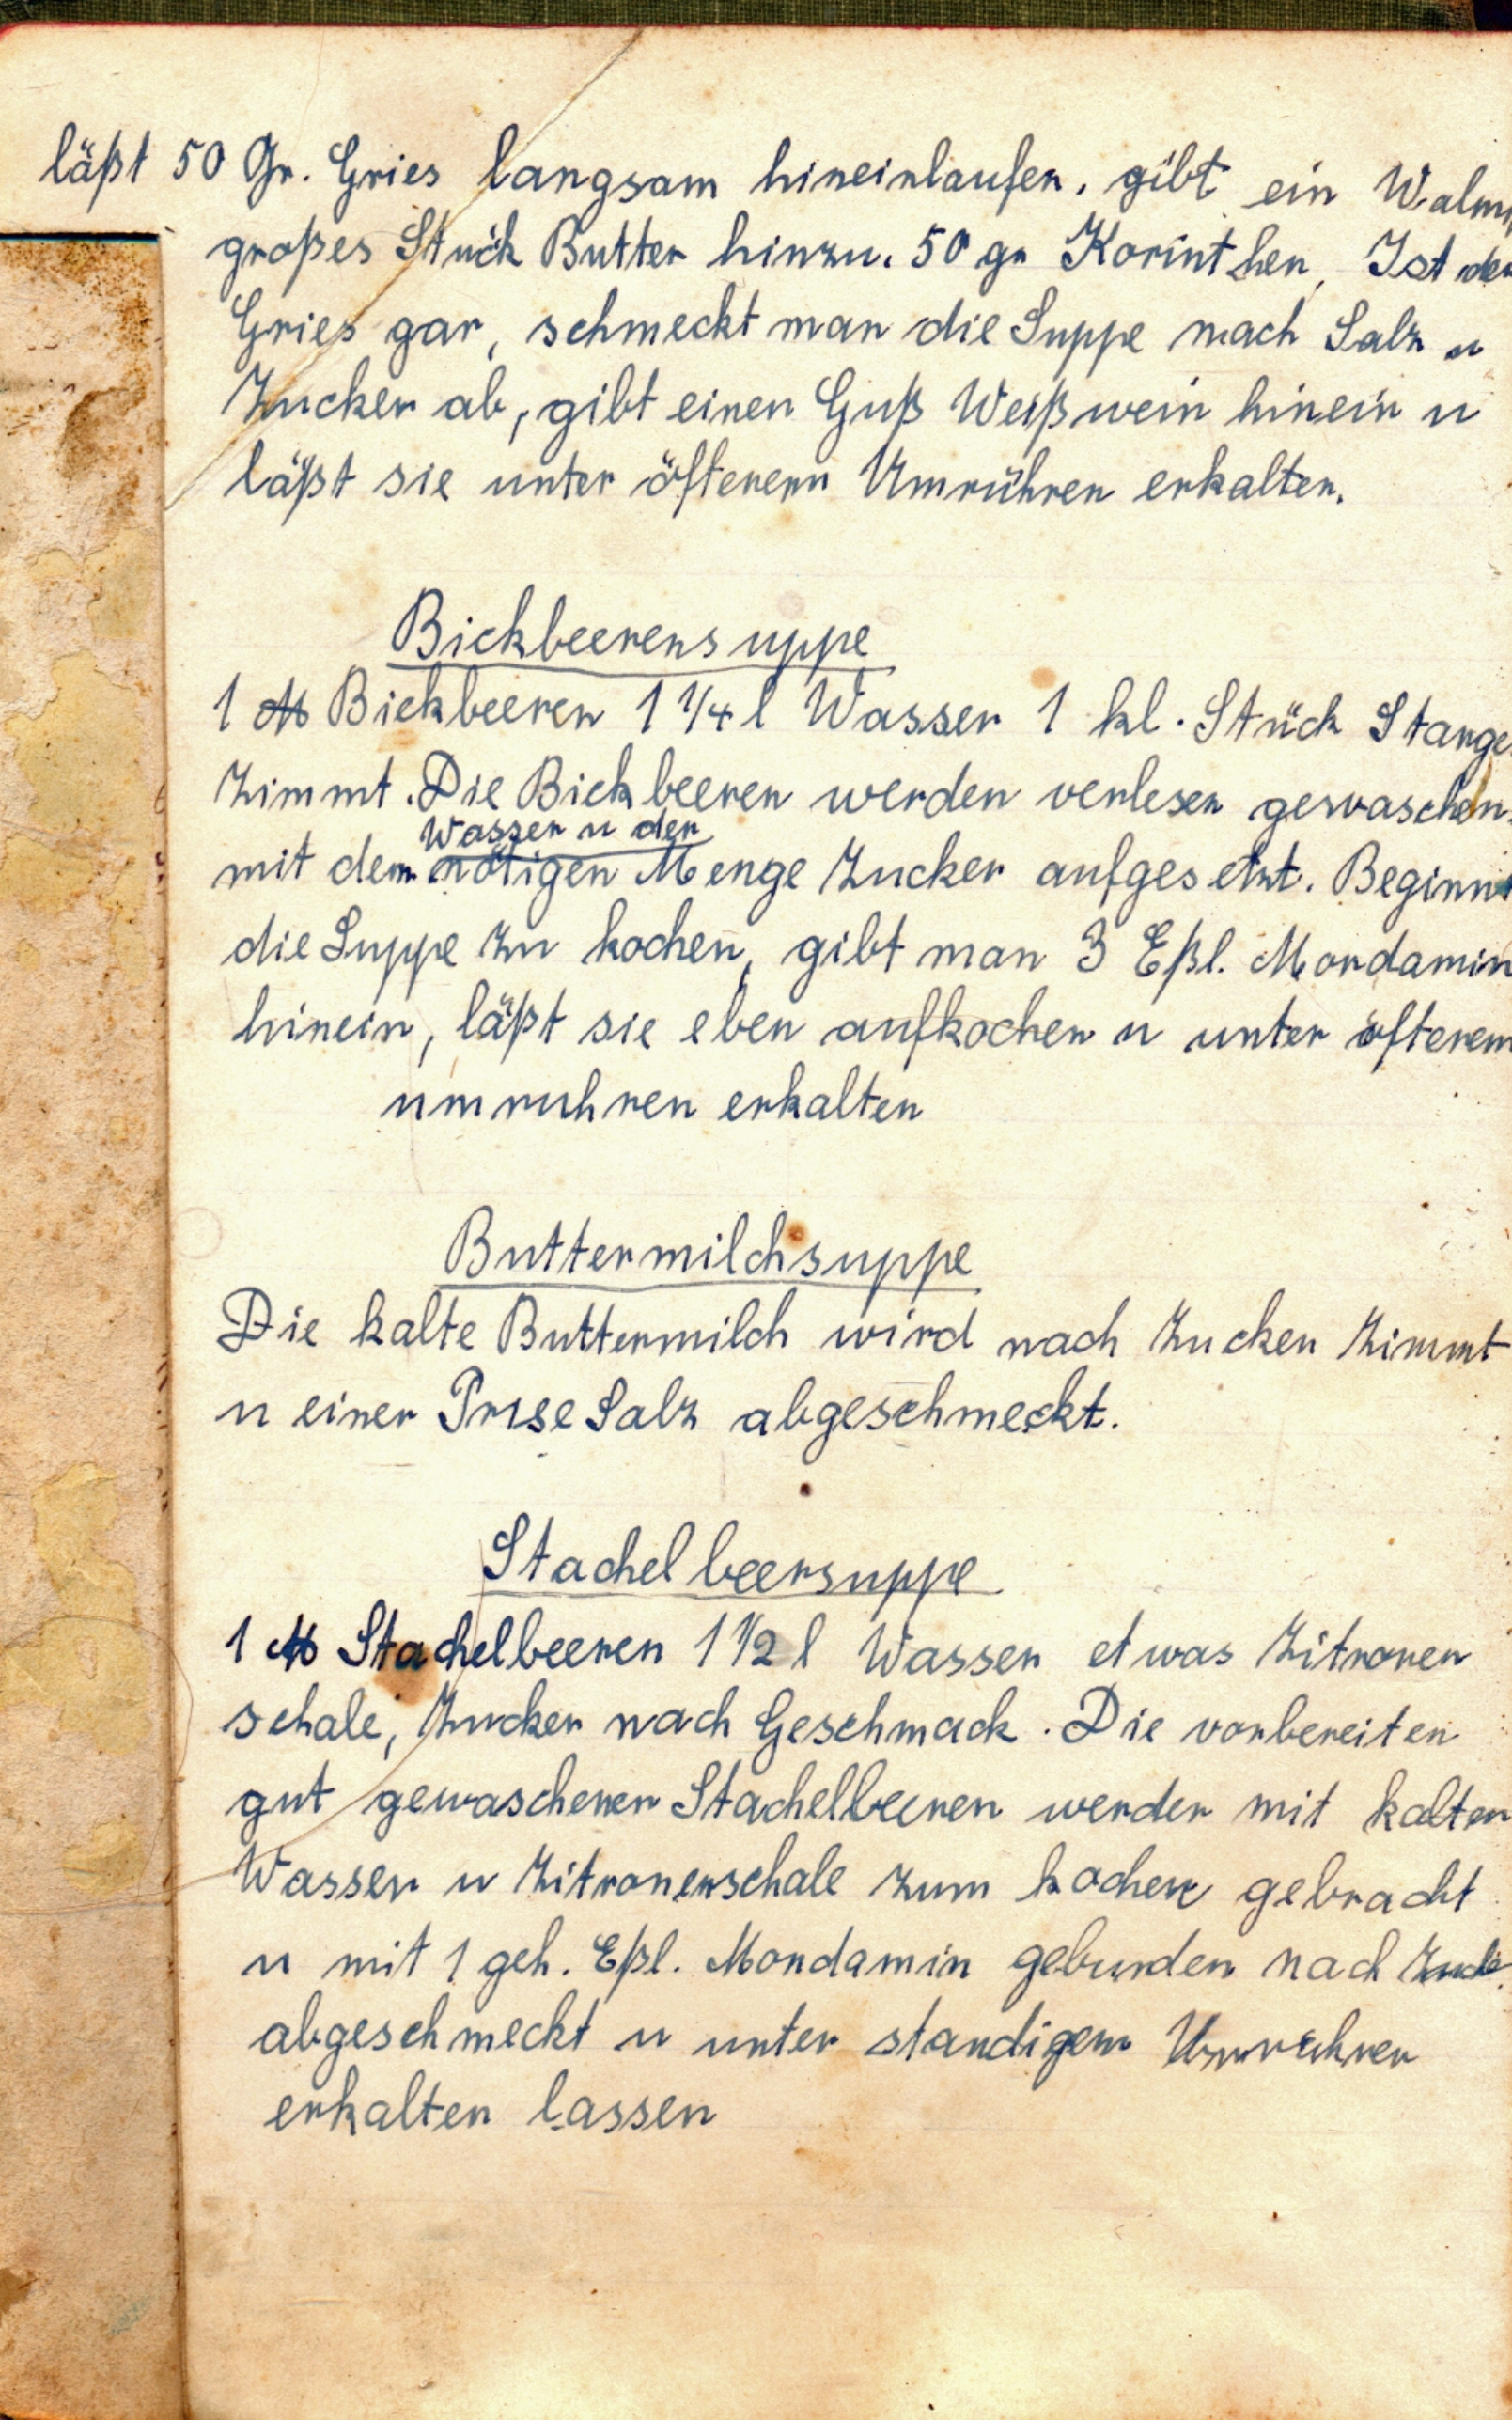 läßt 50 Gr. Gries langsam hineinlaufen, gibt ein Waln
großes Stück Butter hinzu. 50 gr Korinthen, Ist der
Gries gar, schmeckt man die Suppe nach Salz u
Zucker ab, gibt einen Guß Weißwein hinein u
läßt sie unter öfterem Umrühren erkalten.
Bickbeerensuppe
1 ℔ Bickbeeren 1 1/4 l Wasser 1 kl. Stück Stange
Zimmt. Die Bickbeeren werden verlesen gewaschen
Wasser u der
mit dem nötigen Menge Zucker aufgesetzt. Beginnt
die Suppe zu kochen, gibt man 3 Eßl. Mondamin
hinein, läßt sie eben aufkochen u unter öfterem
umruhren erkalten
Buttermilchsuppe
Die kalte Buttermilch wird nach Zucker Zimmt
u einer Prise Salz abgeschmeckt.
Stachelbeersuppe
1 ℔ Stachelbeeren 1 1/2 l Wasser etwas Zitronen
schale, Zucker nach Geschmack. Die vorbereiten
gut gewaschenen Stachelbeeren werden mit kalten
Wasser u Zitronenschale zum kochen gebracht
u mit 1 geh. Eßl. Mondamin gebunden nach Zucke
abgeschmeckt u unter standigem Umruhren
erkalten lassen